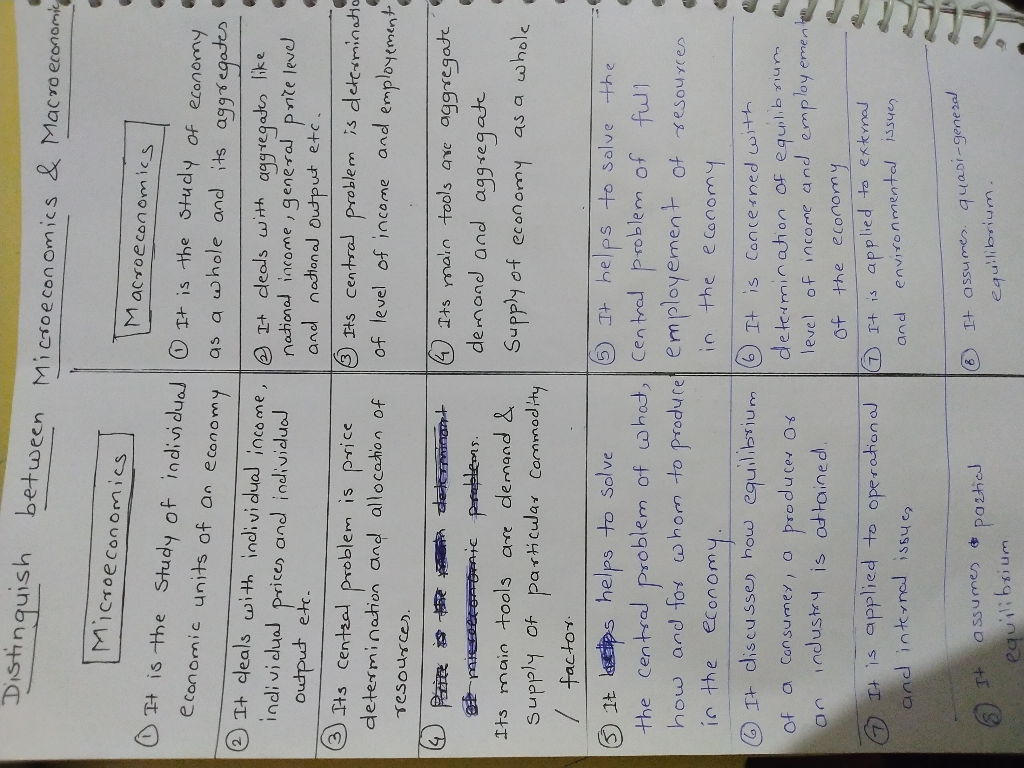 Distinguish between Microeconomics & Macroeconomic
Microeconomics
Macroeconomics
① It is the study of individual
economic units of an economy
① It is the study of economy
as a whole and its aggregates
② It deals with individual income,
individual prices and individual
output etc.
② It deals with aggregates like
national income, general price level
and national output etc.
③ Its central problem is price
determination and allocation of
resources.
③ Its central problem is determinatio
of level of income and employement
④
Its main tools are demand &
supply of particular commodity
/ factor.
④ Its main tools are aggregate
demand and aggregate
supply of economy as a whole
⑤ It helps to solve
the central problem of what,
how and for whom to produce
in the economy.
⑤ It helps to solve the
central problem of full
employement of resources
in the economy
⑥ It discusses how equilibrium
of a consumer, a producer or
an industry is attained.
⑥ It is concerned with
determination of equilibrium
level of income and employement
of the economy
⑦ It is applied to operational
and internal issues
⑦ It is applied to external
and environmental issues
⑧ It assumes partial
equilibrium
⑧ It assumes quasi-general
equilibrium.